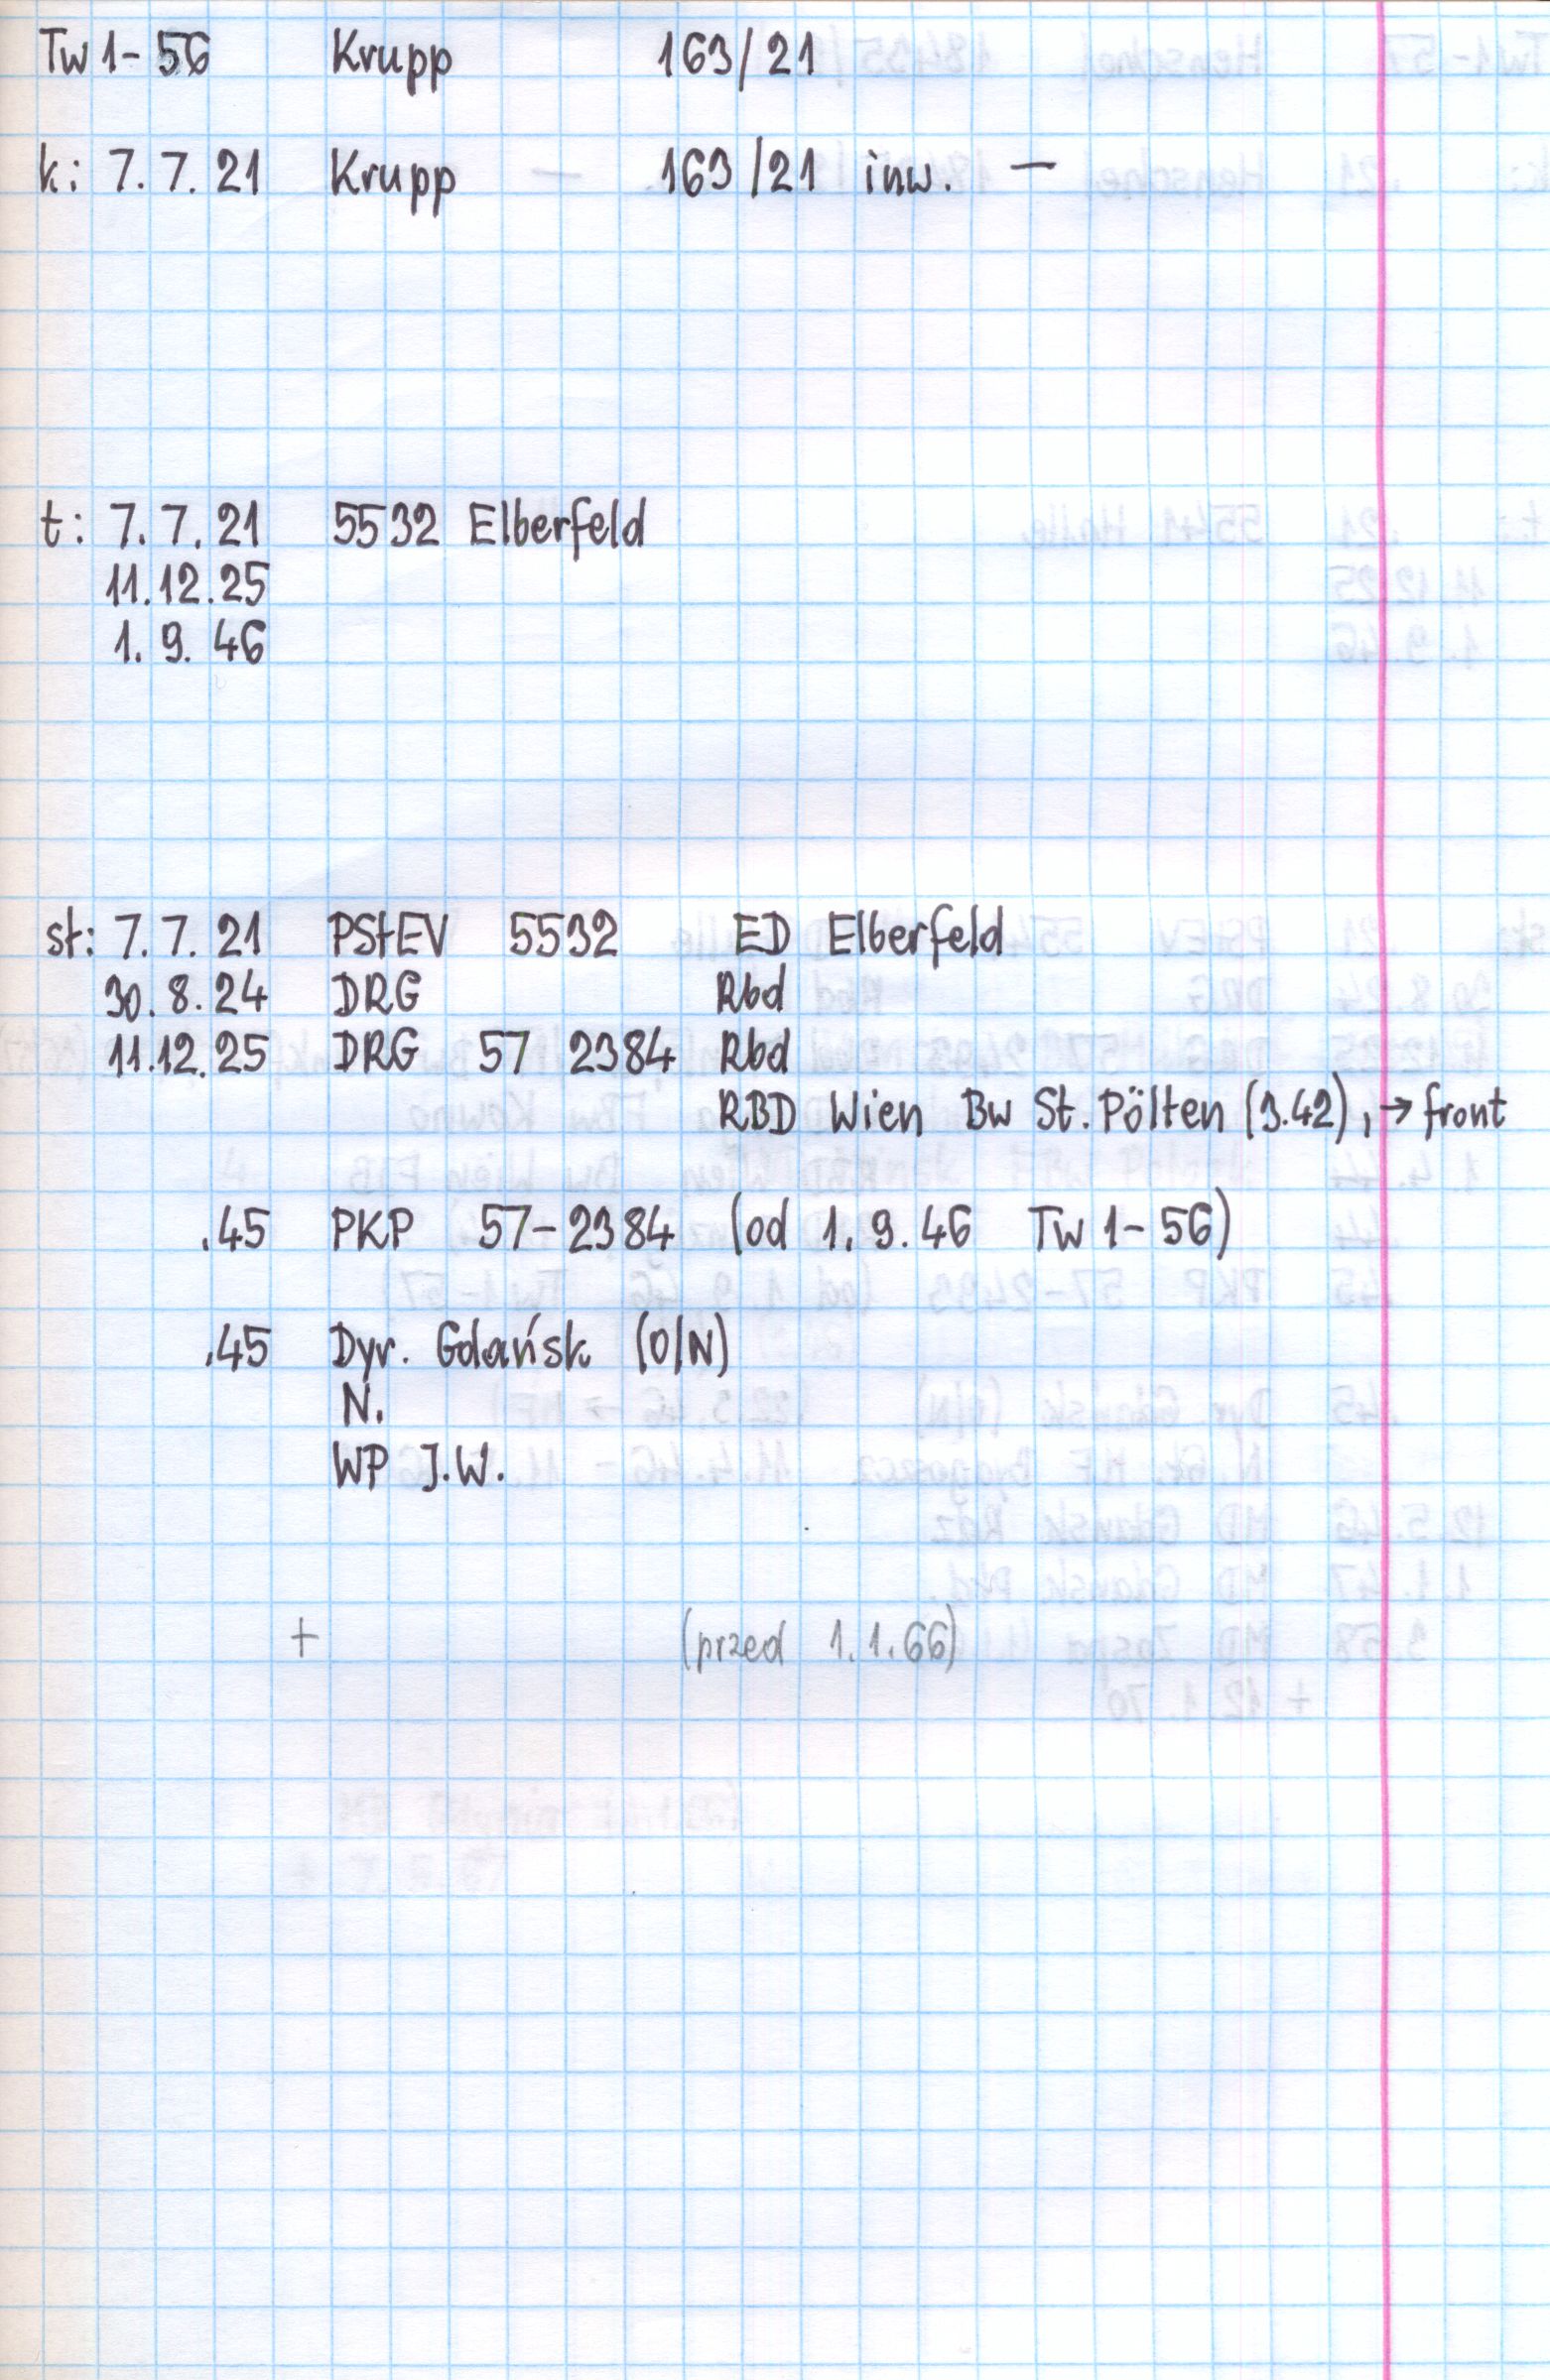 Tw 1-56 Krupp 163/21
k: 7.7.21 Krupp 163/21 inw. —
t: 7.7.21 5532 Elberfeld
11.12.25
1.9.46
st: 7.7.21 PStEV 5532 ED Elberfeld
30.8.24 DRG Rbd
11.12.25 DRG 57 2384 Rbd
RBD Wien Bw St. Pölten (3.42), → front
.45 PKP 57-2384 (od 1.9.46 Tw 1-56)
.45 Dyr. Gdańsk (O/N)
N.
WP J.W.
+ (przed 1.1.66)